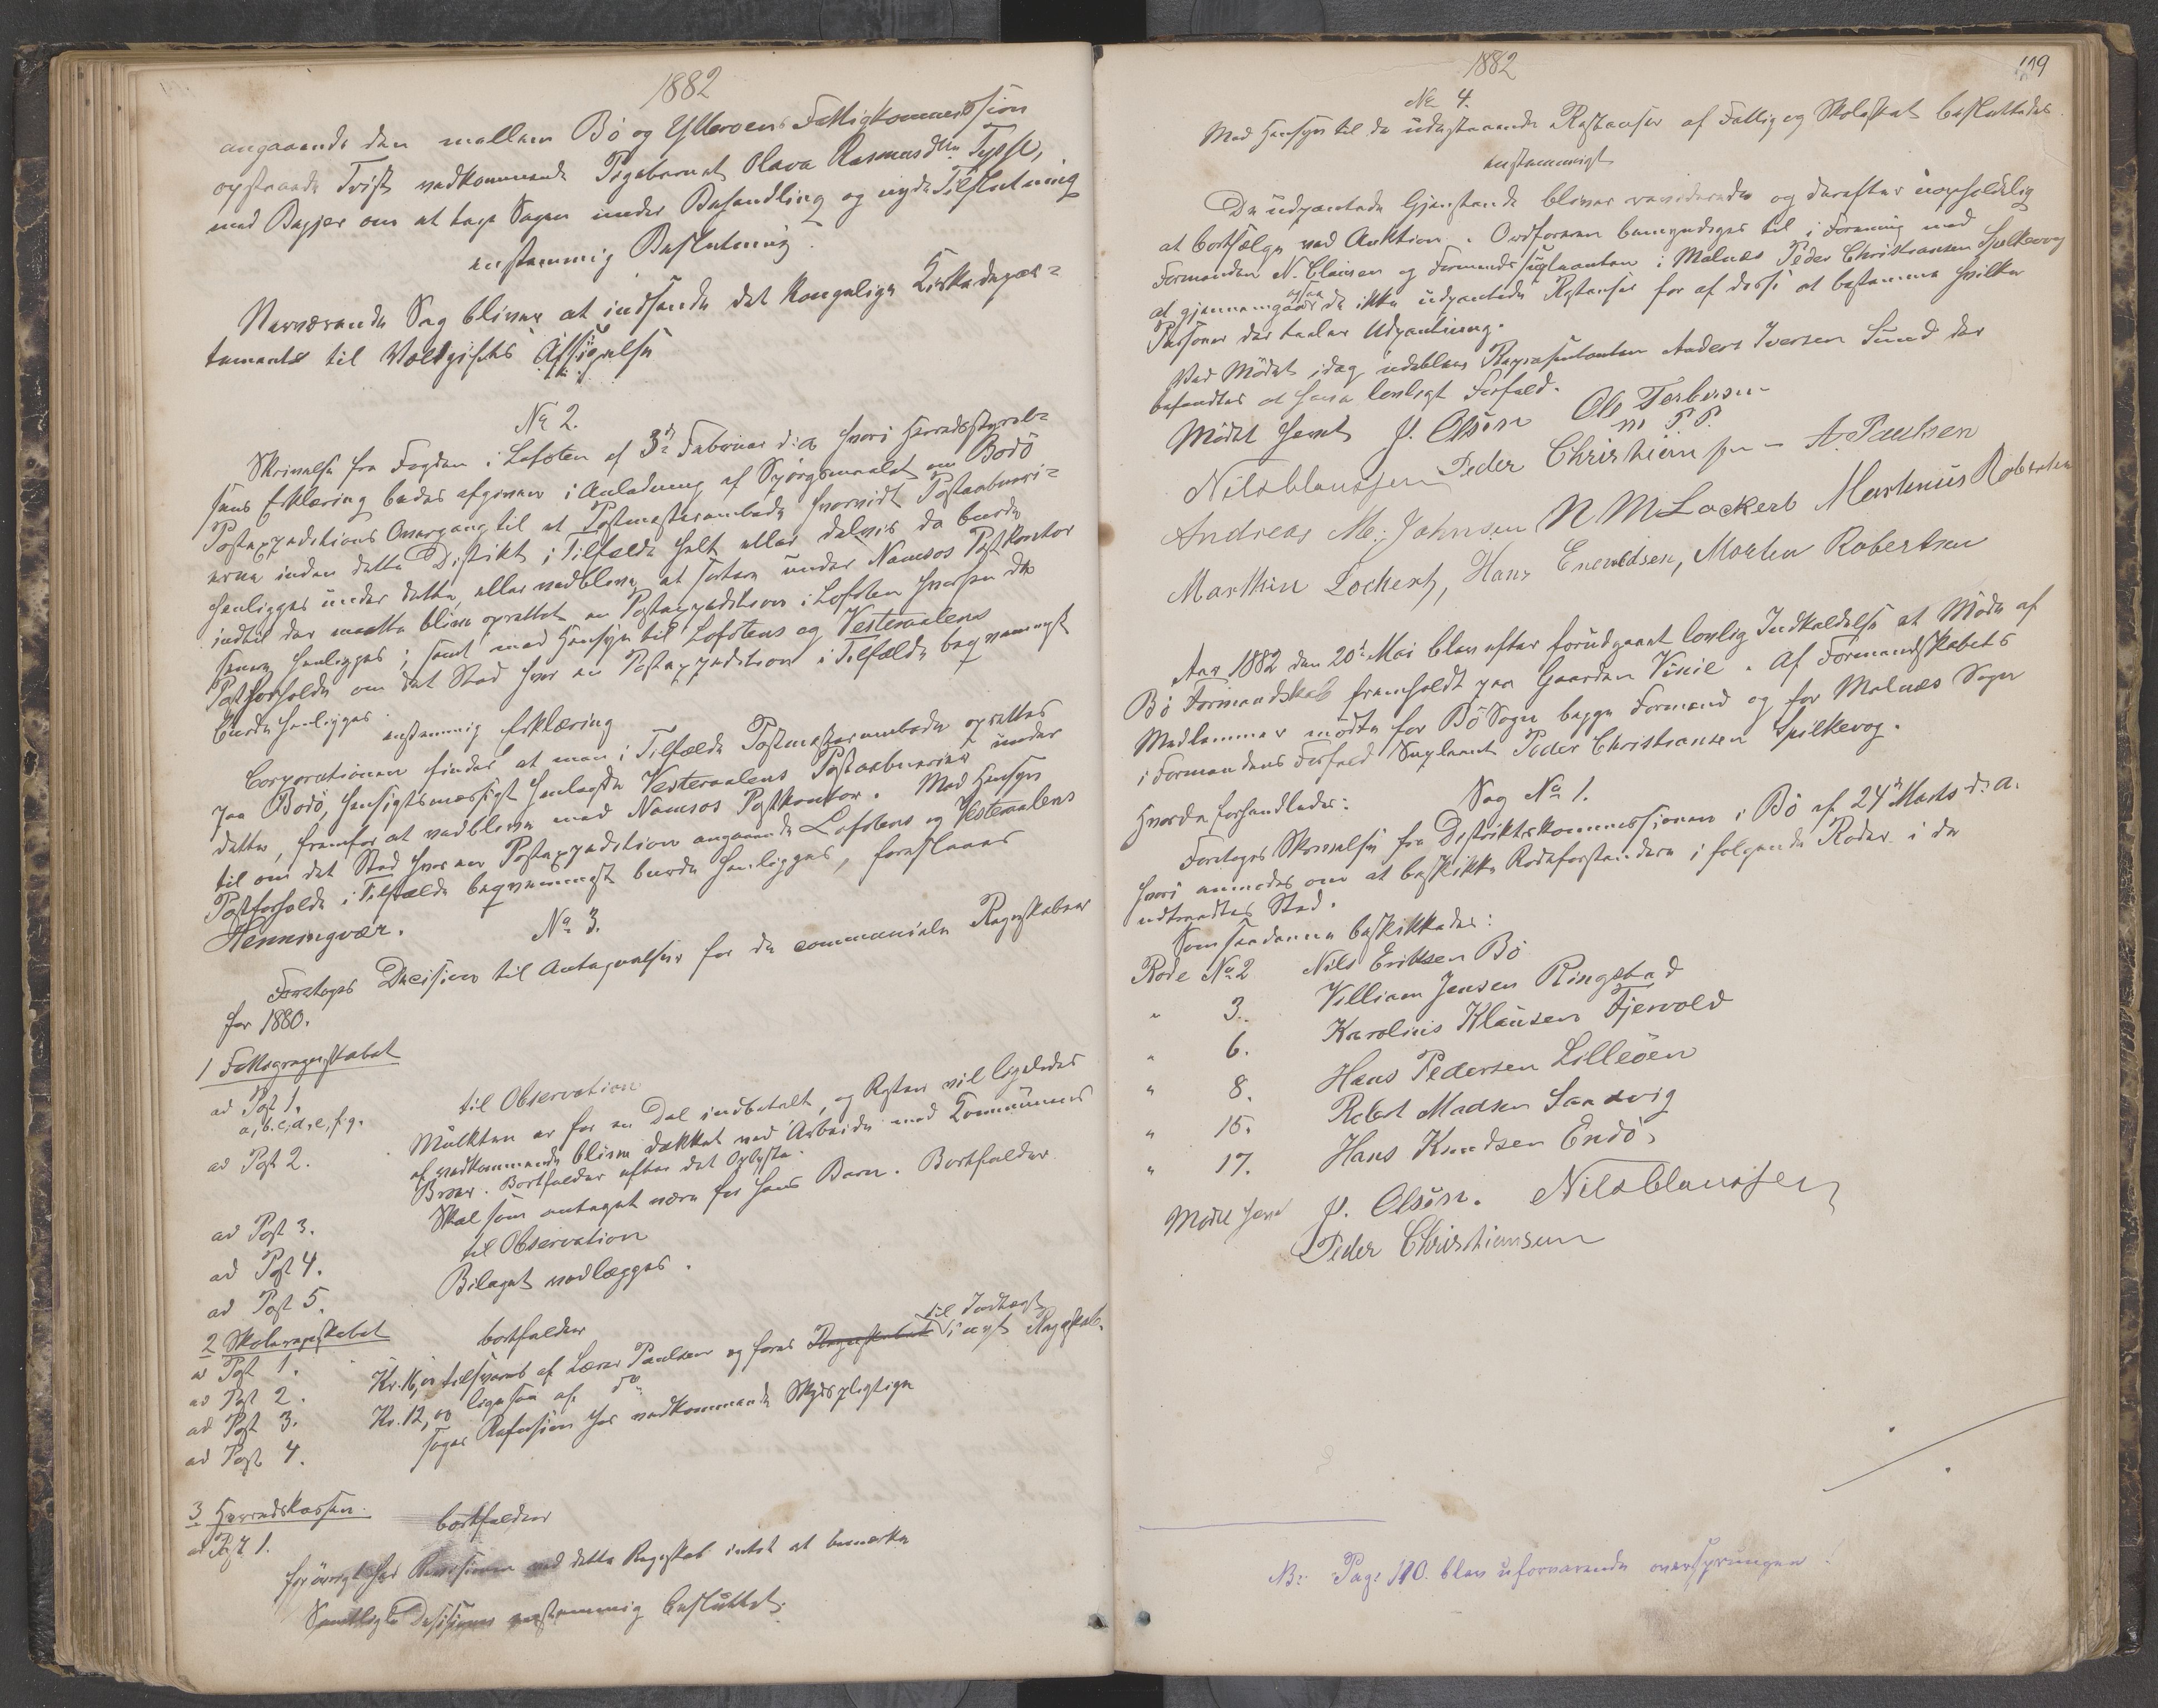 1882
angaaende den mellem Bö og Ytteröens Fattigkommission
opstaaede Tvist vedkommende Pigebarnet Olava Rasmusdtr Tysse,
med Begjær om at tage Sagen under Behandling og
enstemmig Beslutning.
Nærværende Sag bliver at indsende det Kongelige Kirkedepar=
tements til Voldgifts Afsigelse
No 2.
Skrivelse fra Fogden i Lofoten af 3de Februar d: a hvori Herredsstyrel=
sens Erklæring bedes afgiven i Anledning af Spörgsmaalet om Bodö
Postexpeditions Overgang til et Postmesterembede hvorvidt Postaabneri=
erne inden dette Distrikt i Tilfælde helt eller delvis da burde
henlægges under dette, eller vedblive at sortere under Namsos Postkontor
indtil der maatte blive oprettet en Postexpedition i Lofoten hvorhen de
senere henlægges; samt med Hensyn til Lofotens og Vesteraalens
Postforholde om det Sted hvor en Postexpedition i Tilfælde beqvemmest
burde henlægges.
enstemmig Erklæring
Corporationen finder at man i Tilfælde Postmesterembede oprettes
paa Bodö, hensigtsmæssigt henlagde Vesteraalens Postaabnerier under
dette, fremfor at vedblive med Namsos Postkontor. Med Hensyn
til om det Sted hvor en Postexpedition angaaende Lofotens og Vesteraalens
Postforholde i Tilfælde beqvemmest burde henlægges, foreslaaes
Henningvær.
No 3.
Foretoges Decision til Antegnelser for de communale Regnskaber
for 1880.
1 Fattigregnskabet
ad Post 1.
a, b, c, d, e, f, g.
til Observation
ad Post 2.
Mulkten er for en Del indbetalt, og Resten vil ligeledes
af vedkommende blive dækket ved Arbeide med Kommunens
Broer. Bortfalder efter det Oplyste.
ad Post 3.
Skal som antaget være for hans Barn. Bortfalder
ad Post 4.
til Observation
ad Post 5.
Bilaget vedlægges.
2 Skoleregnskabet
ad Post 1.
bortfalder
ad Post 2.
Kr. 16, tilsvares af Lærer Paulsen og föres Regnskabet til Indtægt i nyt Regnskab.
ad Post 3.
Kr. 12,00 ligesaa af do
ad Post 4.
söges Refusion hos vedkommende Skydspligtige
3 Herredskassen.
ad Post 1.
bortfalder
forövrigt har Revisionen ved dette Regnskab intet at bemærke
Samtlige Desisioner enstemmig besluttet.
1882
119
No 4.
Med Hensyn til de udestaaende Restanser af Fattig og Skoleskat besluttedes
enstemmigt
De udpantede Gjenstande bliver at revidere og derefter uopholdelig
at bortsælge ved Auktion. Ordföreren bemyndiges til i Forening med
Formanden N. Clausen og Formandssupleanten i Malnæs Peder Christiansen Spilkevog
at gjennemgaa ogsaa de ikke udpantede Restanser for af disse at bestemme hvilke
Personer der taaler Udpantning.
Ved Mödet idag udeblev Representanten Anders Iversen Sund der
befandtes at have lovligt Forfald.
Mödet hævet J. Olsen Ole Torbersen
m. P. P.
Nils Claussen Peder Christiansen A. Paulsen
Andreas M. Johnsen N M Lockert Martinus Robertsen
Marthin Lochert, Hans Enevoldsen, Morten Robertsen
Aar 1882 den 20de Mai blev efter forudgaaet lovlig Indkaldelse et Möde af
Bö Formandskab fremholdt paa Gaarden Vinie. Af Formandskabets
Medlemmer mödte for Bö Sogn begge Formænd og for Malnæs Sogn
i Formandens Forfald Supleant Peder Christiansen Spilkevog.
Hvorda forhandledes:
Sag No 1.
Foretoges Skrivelse fra Distriktskommissionen i Bö af 24de Marts d: a.
hvori anmodes om at beskikke Rodeforstandere i fölgende Roder i de
udtraadtes Sted.
Som saadanne beskikkedes:
Rode No 2 Nils Eriksen Bö
" 3. Villiam Jensen Ringstad
" 6. Karolius Klausen Fjervold
" 8. Hans Pedersen Lilleöen
" 15. Robert Madsen Sandvig
" 17. Hans Knudsen Endö,
Mödet hævet J. Olsen. Nils Claussen
Peder Christiansen
NB: Page 110. blev uforvarende oversprungen!